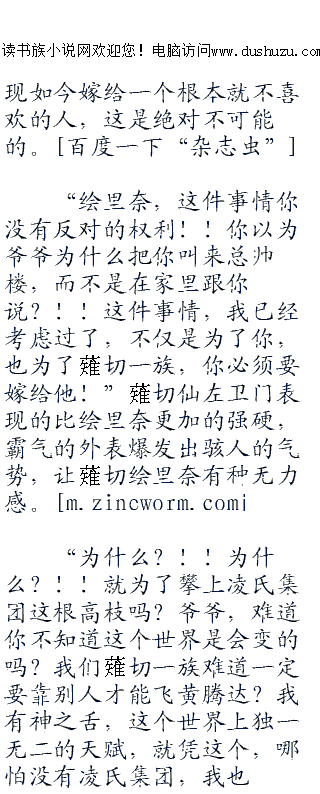 读书族小说网欢迎您！电脑访问www.dushuzu.com
现如今嫁给一个根本就不喜
欢的人，这是绝对不可能
的。[百度一下“杂志虫”]
“绘里奈，这件事情你
没有反对的权利！！你以为
爷爷为什么把你叫来总帅
楼，而不是在家里跟你
说？！！这件事情，我已经
考虑过了，不仅是为了你，
也为了薙切一族，你必须要
嫁给他！”薙切仙左卫门表
现的比绘里奈更加的强硬，
霸气的外表爆发出骇人的气
势，让薙切绘里奈有种无力
感。[m.zincworm.com]
“为什么？！！为什
么？！！就为了攀上凌氏集
团这根高枝吗？爷爷，难道
你不知道这个世界是会变的
吗？我们薙切一族难道一定
要靠别人才能飞黄腾达？我
有神之舌，这个世界上独一
无二的天赋，就凭这个，哪
怕没有凌氏集团，我也